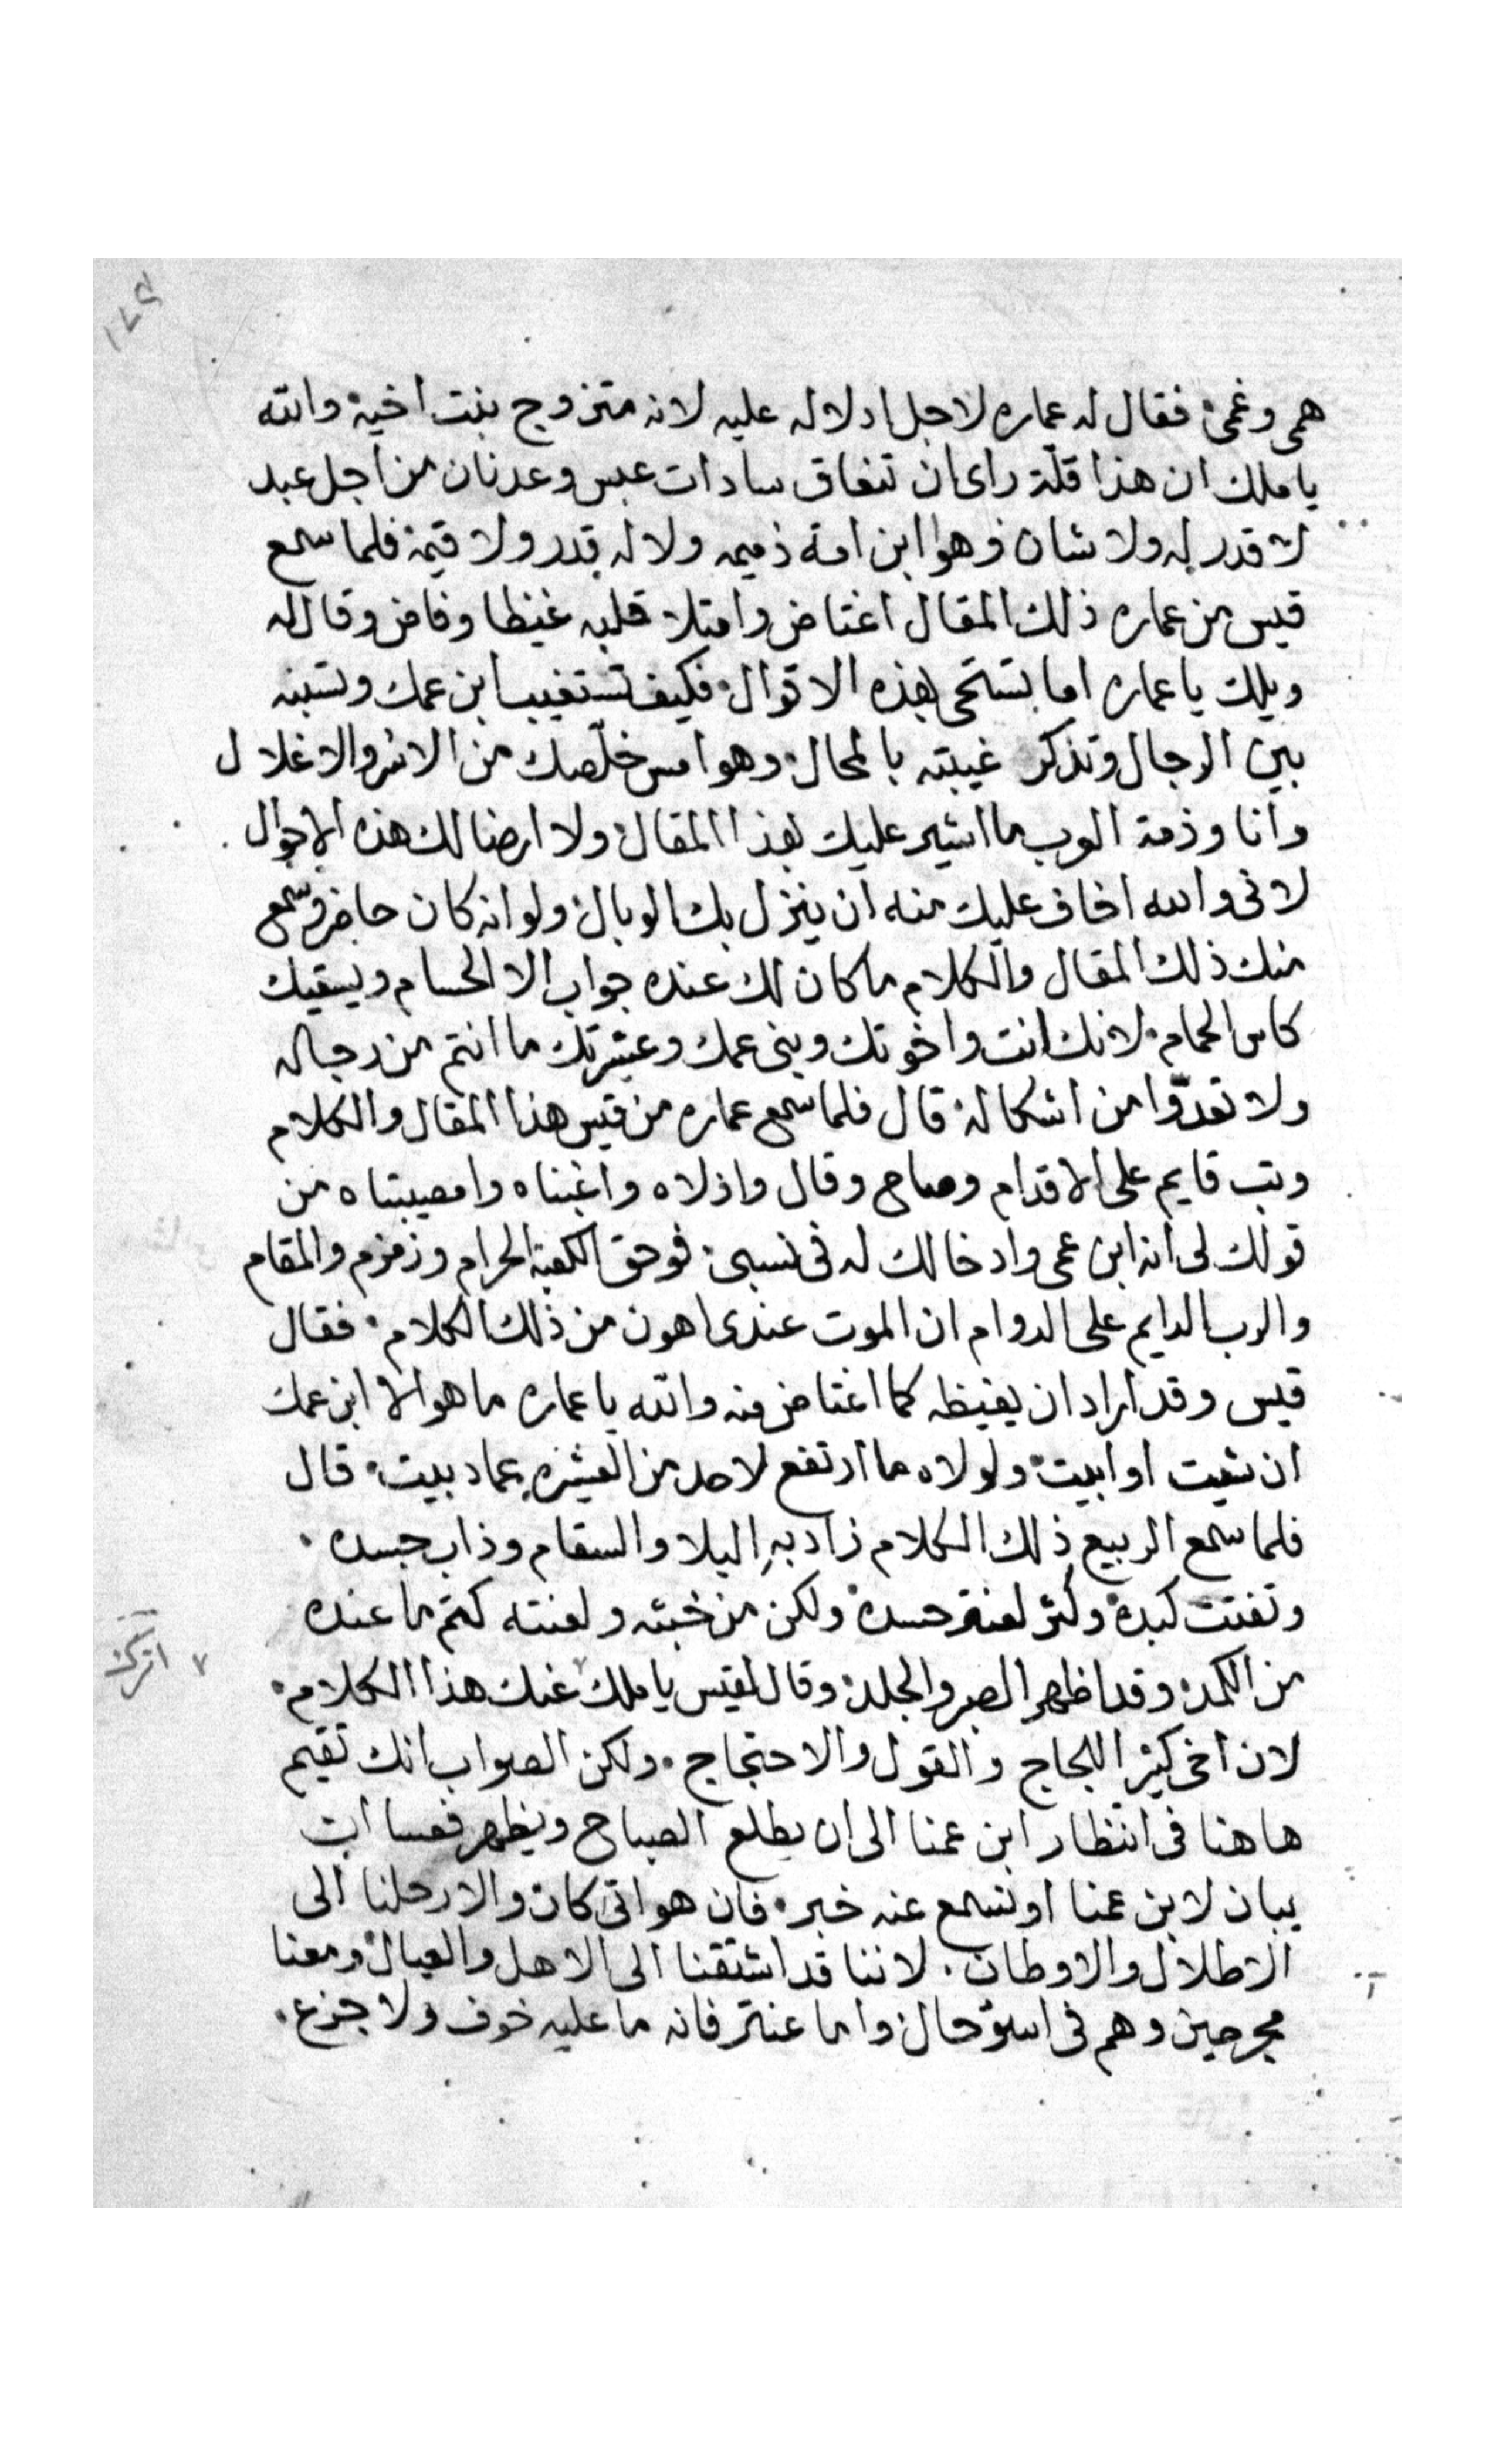 ١٤٩
همى وغمى فقال له عماره لاجل ادلاله عليه لانه متزوج بنت اخيه والله
يا ملك ان هذا قلّة راى ان تنعاق سادات عبس وعدنان من اجل عبد
لا قدر له ولا شان وهو ابن امة ذميمه ولا له قدر ولا قيمة فلما سمع
قيس من عماره ذلك المقال اغتاض وامتلا قلبه غيظا وفاض وقال له
ويلك يا عماره اما تستحى بهذه الاقوال فكيف تستغيب ابن عمك وتسبه
بين الرجال وتذكر غيبته بالمحال وهو امس خلّصك من الاسر والاغلال
وانا وذمة العرب ما اشير عليك بهذا المقال ولا ارضا لك هذه الاحوال
لانى والله اخاف عليك منه ان ينزل بك الوبال ولو انه كان حاضر وسمع
منك ذلك المقال والكلام ما كان لك عنده جواب الا الحسام ويسقيك
كاس الحمام لانك انت واخوتك وبنى عمك وعشيرتك ما انتم من رجاله
ولا تعدّوا من اشكاله قال فلما سمع عماره من قيس هذا المقال والكلام
وتب قايم على الاقدام وصاح وقال واذلاه واغبناه وامصيبتاه من
قولك لى انه ابن عمى وادخالك له فى نسبى فوحق الكعبة الحرام وزمزم والمقام
والرب الدايم على الدوام ان الموت عندى اهون من ذلك الكلام فقال
قيس وقد اراد ان يغيظه كما اغتاض منه والله يا عماره ما هو الا ابن عمك
ان شيت او ابيت ولولاه ما ارتفع لاحد من العشيره عماد بيت قال
فلما سمع الربيع ذلك الكلام زاد بهِ البلا والسقام وذاب جسده
وتفتت كبده وكثر لعنتر حسده ولكن من خبثه ولعنته كتم ما عنده
من الكمد وقد اظهر الصبر والجلد وقال لقيس يا ملك ٧ عنك هذا الكلام
٧ اترك
لان اخى كثير اللجاج والقول والاحتجاج ولكن الصواب انك تقيم
هاهنا فى انتظار ابن عمنا الى ان يطلع الصباح ويظهر فعسا ان
يبان لابن عمنا او نسمع عنه خبر فان هو اتى كان والا رحلنا الى
الاطلال والاوطان لاننا قد اشتقنا الى الاهل والعيال ومعنا
مجرحين وهم فى اسوء حال واما عنتر فانه ما عليه خوف ولا جزع